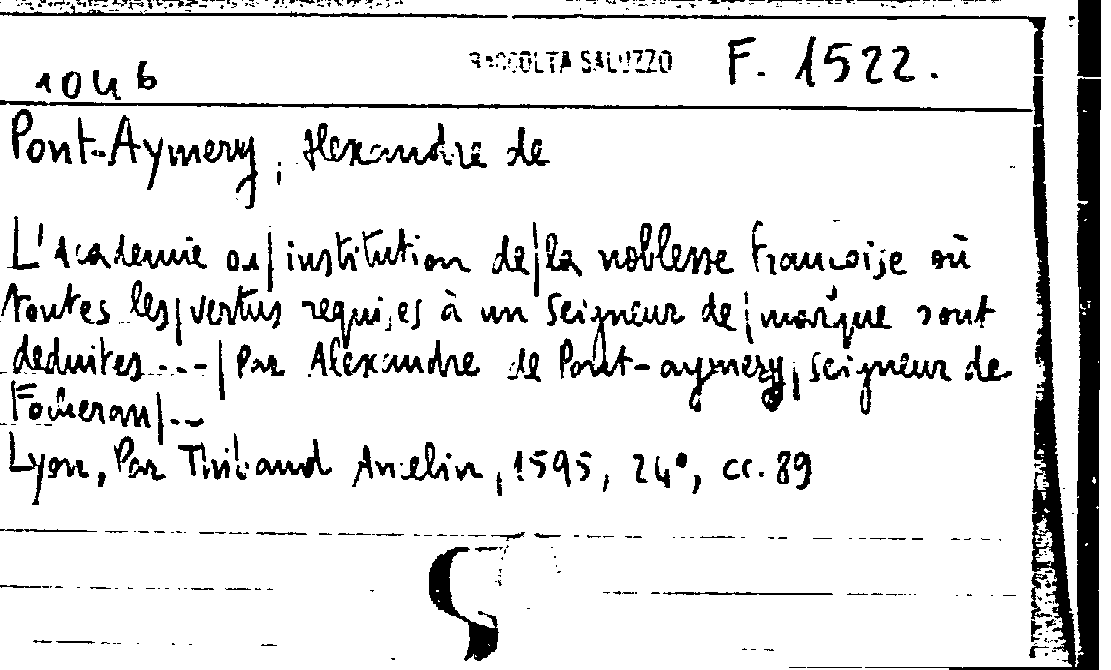 1046 RACCOLTA SALUZZO F. 1522.
Pont-Aymery, Alexandre de
L'Academie ou| institution de|la noblesse francoise où
toutes les|vertus requises à un Seigneur de|marque sont
deduites...| Par Alexandre de Pont-aymery, seigneur de
Focheran|..
Lyon, Par Thibaud Ancelin, 1595, 24°, cc. 89